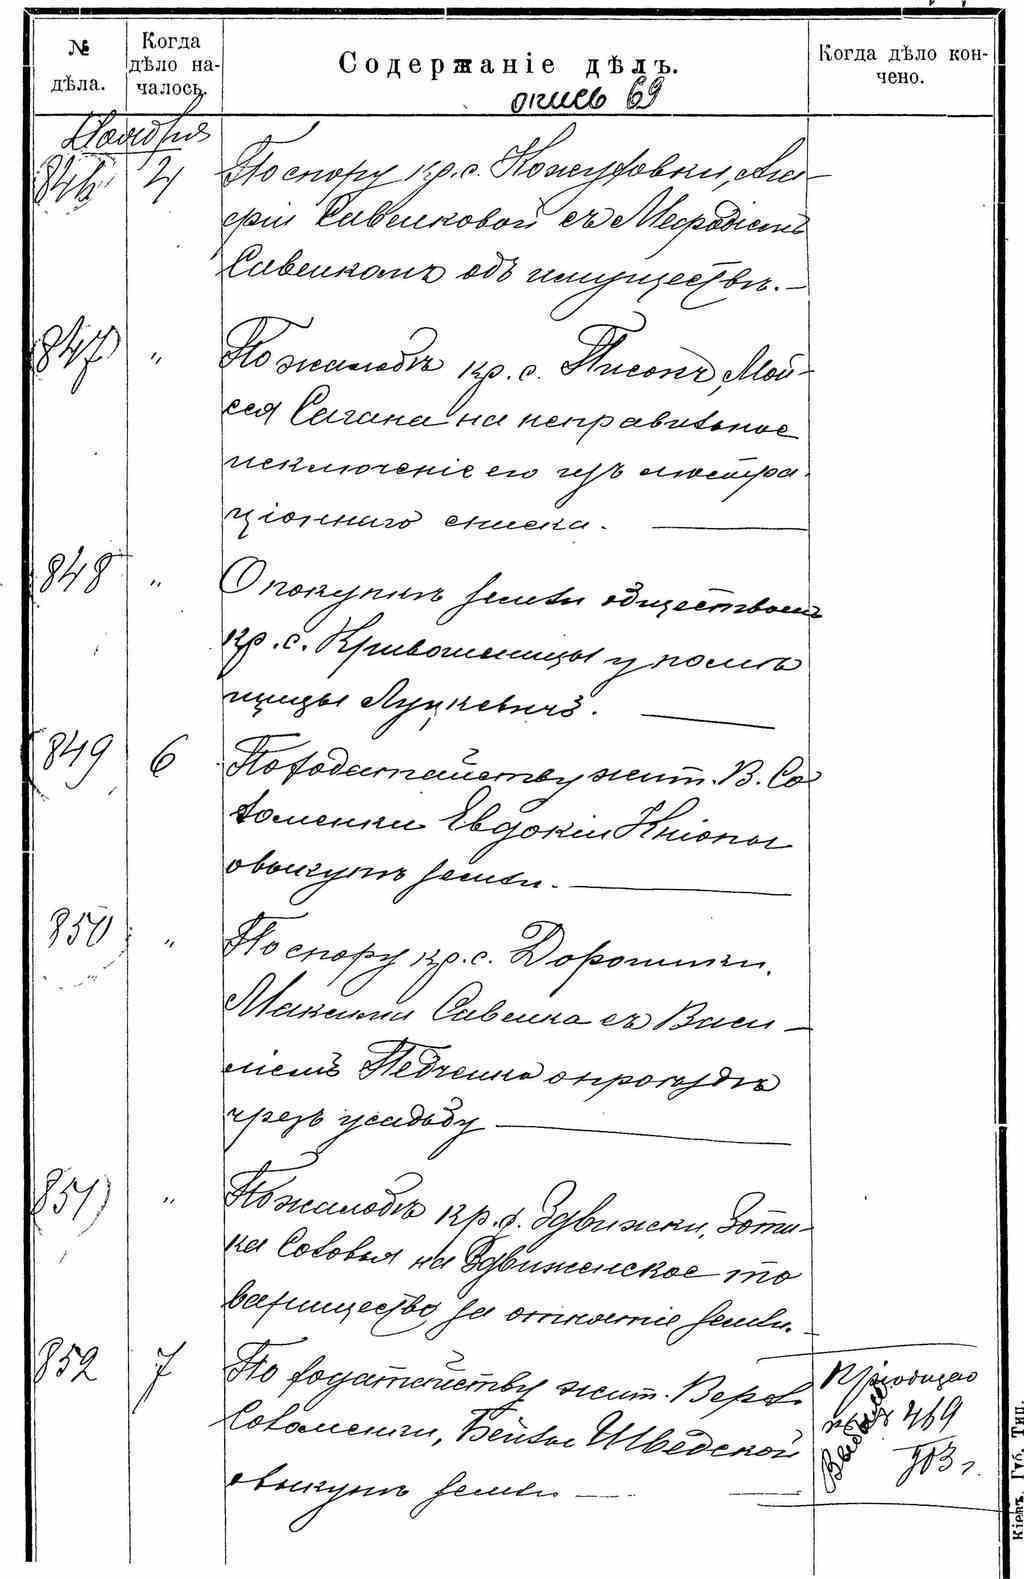 № дѣла.
Когда дѣло на-
чалось.
Содержаніе дѣлъ.
Когда дѣло кон-
чено.
опись 69
Ноября
846 4 По спору кр. с. Кожуховки, Ма-
ріи Савенковой съ Меѳодіемъ
Савенкомъ объ имуществѣ. —
847 " По жалобѣ кр. с. Мой-
сея Сагана на неправильное
исключеніе его изъ люстра-
ціоннаго списка. —
848 " О покупкѣ земли обществомъ
кр. с. Кривошеинцы у помѣ
щицы Луцкевичъ. —
849 6 По ходатайству жит. В. Со
ломенки Евдокіи Кніопы
о выкупѣ земли. —
850 " По спору кр. с. Дорогинки,
Максима Савенка съ Васи —
ліемъ Педченко о проѣздѣ
чрезъ усадьбу —
851 " По жалобѣ кр. с. Здвижски, Зоти-
ка Соловья на Здвиженское то
варищество за отнятіе земли. —
852 7 По ходатайству жит. Верх.
Соломенки, Бейлы Шведской
о выкупѣ земли —
Пріобщено
къ д. 469
903 г.
Кіевъ. Губ. Тип.